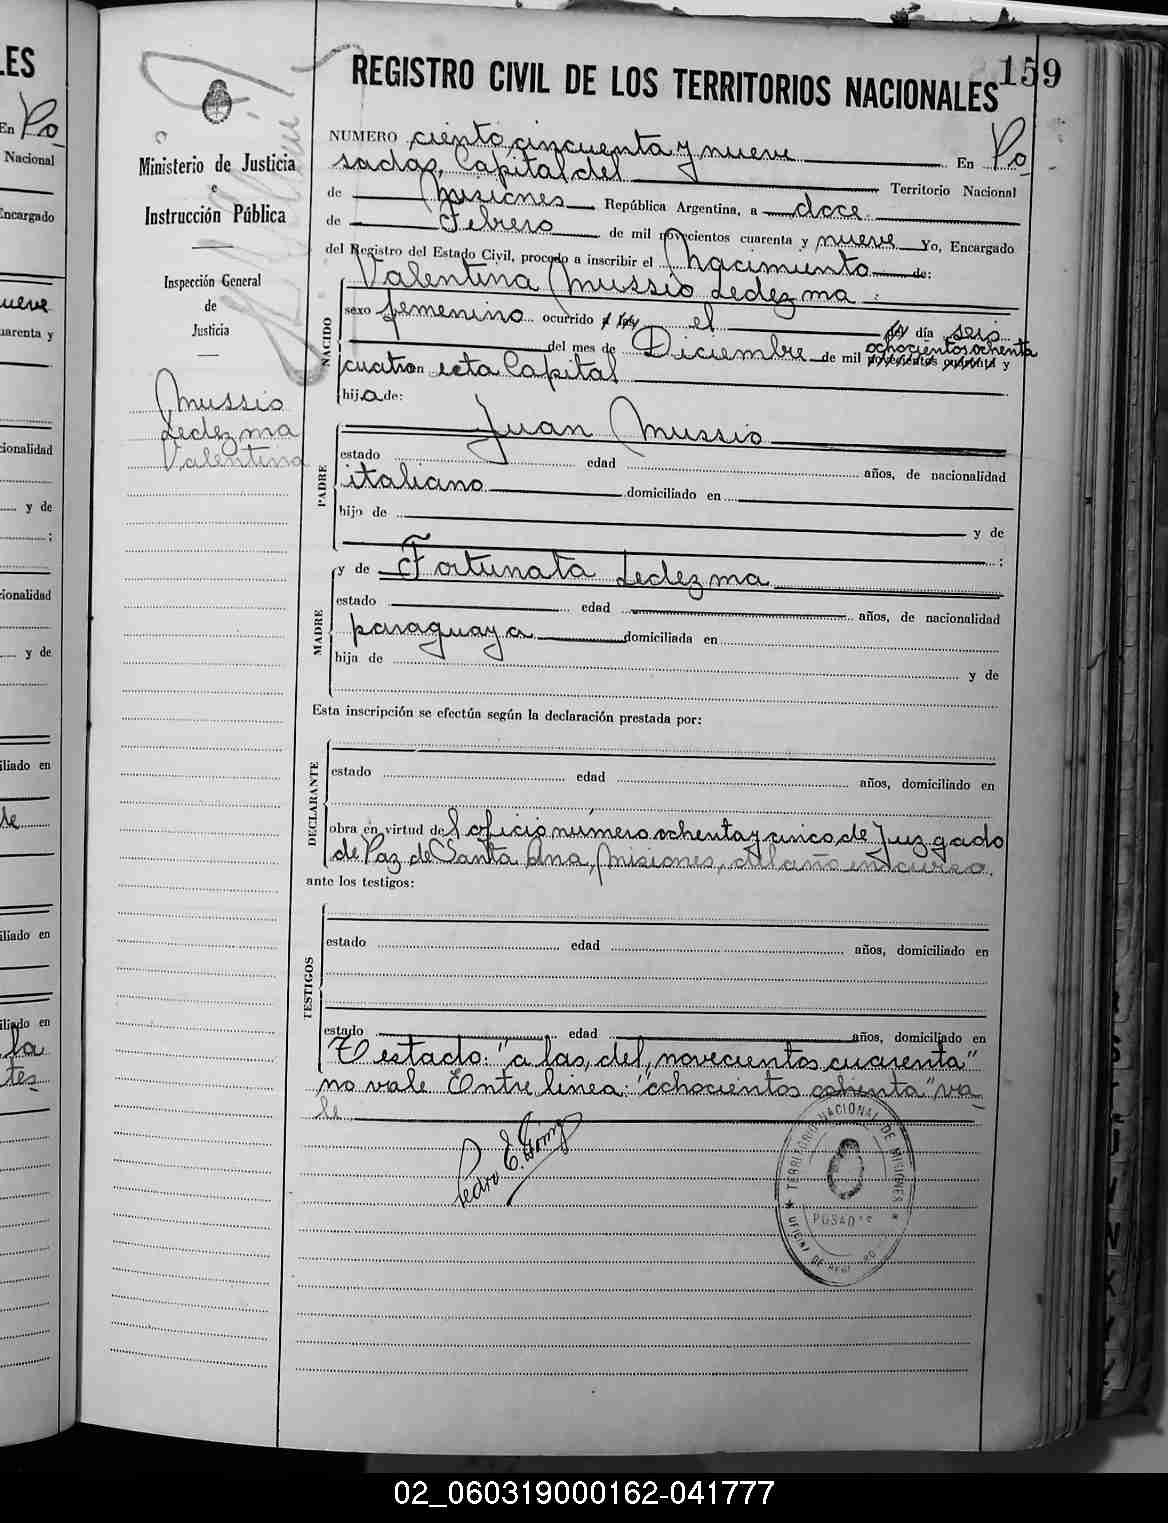 LES
En Po
Nacional
Encargado
nueve
uarenta y
cionalidad
y de
;
cionalidad
y de
iliado en
iliado en
iliado en
la
tes
159
REGISTRO CIVIL DE LOS TERRITORIOS NACIONALES
Ministerio de Justicia
e
Instrucción Pública
Inspección General
de
Justicia
Mussio
Ledezma
Valentina
NUMERO ciento cincuenta y nueve En Po
sadas, Capital del Territorio Nacional
de Misiones República Argentina, a doce
de Febrero de mil novecientos cuarenta y nueve Yo, Encargado
del Registro del Estado Civil, procedo a inscribir el Nacimiento de:
Valentina Mussio Ledezma :
NACIDO
sexo femenino ocurrido a las el del día seis
del mes de Diciembre de mil novecientos cuarenta y
ochocientos ochenta
cuatro en esta Capital
hija de:
Juan Mussio
PADRE
estado edad años, de nacionalidad
italiano domiciliado en
hijo de y de
:
y de Fortunata Ledezma
MADRE
estado edad años, de nacionalidad
paraguaya domiciliada en
hija de y de
Esta inscripción se efectúa según la declaración prestada por:
DECLARANTE
estado edad años, domiciliado en
obra en virtud del oficio número ochenta y cinco de Juzgado
de Paz de Santa Ana, Misiones, del año en curso.
ante los testigos:
TESTIGOS
estado edad años, domiciliado en
estado edad años, domiciliado en
Testado: "a las, del, novecientos cuarenta"
no vale Entre linea: "ochocientos ochenta" va
le
Pedro E.
TERRITORIO NACIONAL DE MISIONES
POSADAS
02_060319000162-041777